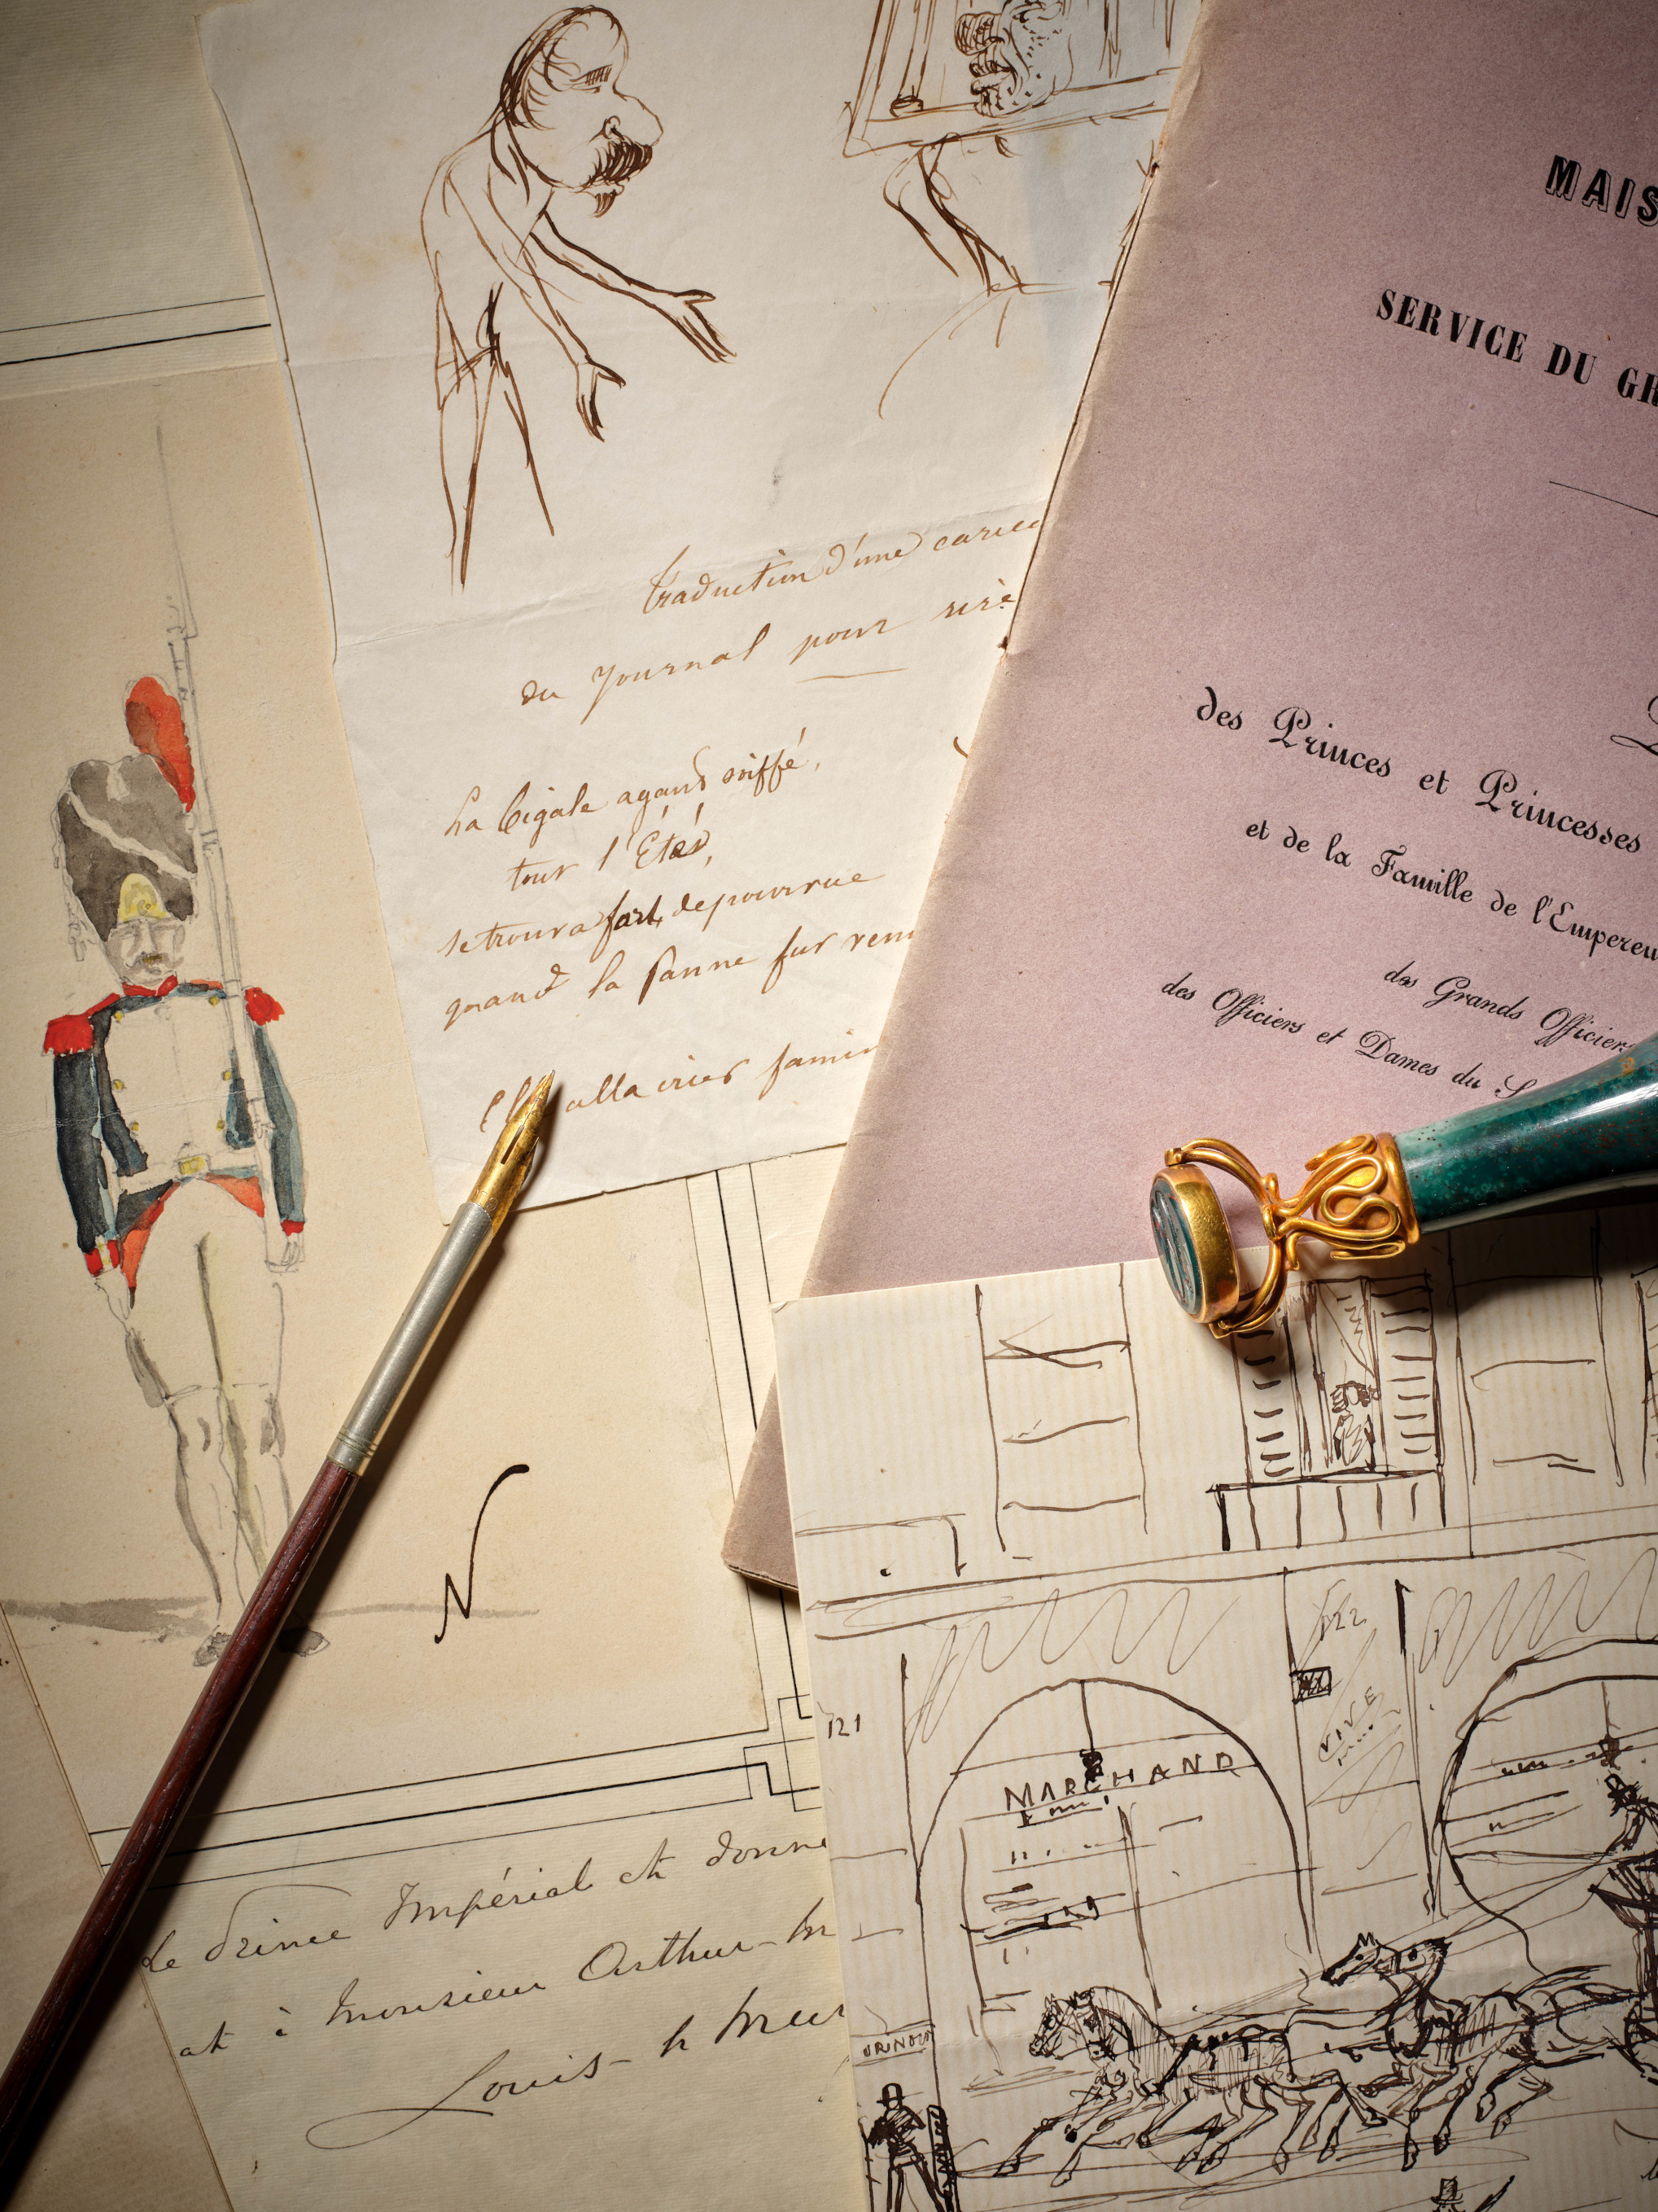 MAIS
SERVICE DU GR
des Princes et Princesses
et de la Famille de l'Empereu
des Grands Officiers
des Officiers et Dames du S
Traduction d'une carica
du Journal pour rire
La Cigale ayant sniffé,
tout l'Été,
se trouva fort depourvue
quand la Panne fut venu
Elle alla crier famin
N
Le Prince Impérial et donn
et à Monsieur Arthur
Louis
121
122
VIVE
MARCHAND